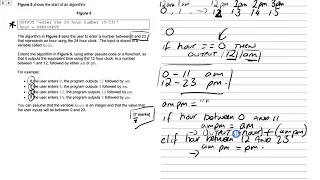 Figure 8 shows the start of an algorithm
Figure 8
OUTPUT 'enter the 24 hour number (0-23)'
hour ← USERINPUT
The algorithm in Figure 8 asks the user to enter a number between 0 and 23
that represents an hour using the 24 hour clock. The input is stored in a
variable called hour.
Extend the algorithm in Figure 8, using either pseudo-code or a flowchart, so
that it outputs the equivalent time using the 12 hour clock, ie a number
between 1 and 12, followed by either am or pm.
For example:
If the user enters 0, the program outputs 12 followed by am.
the program outputs
the program outputs 12 followed by pm.
the program outputs
You can assume that the variable hour is an integer and that the value that
the user inputs will be between 0 and 23.
[7 marks]
12am 1am 12pm 1pm 2pm 3pm
0, 1, 12 13 14 15
0
if hour == 0 THEN
OUTPUT 12 am
0-11 am
12-23 pm
am pm = ""
if hour between 0 and 11
am pm = am
→ OUTPUT (hour) + (am pm)
elif hour between 12 AND 23
→ am pm = pm.